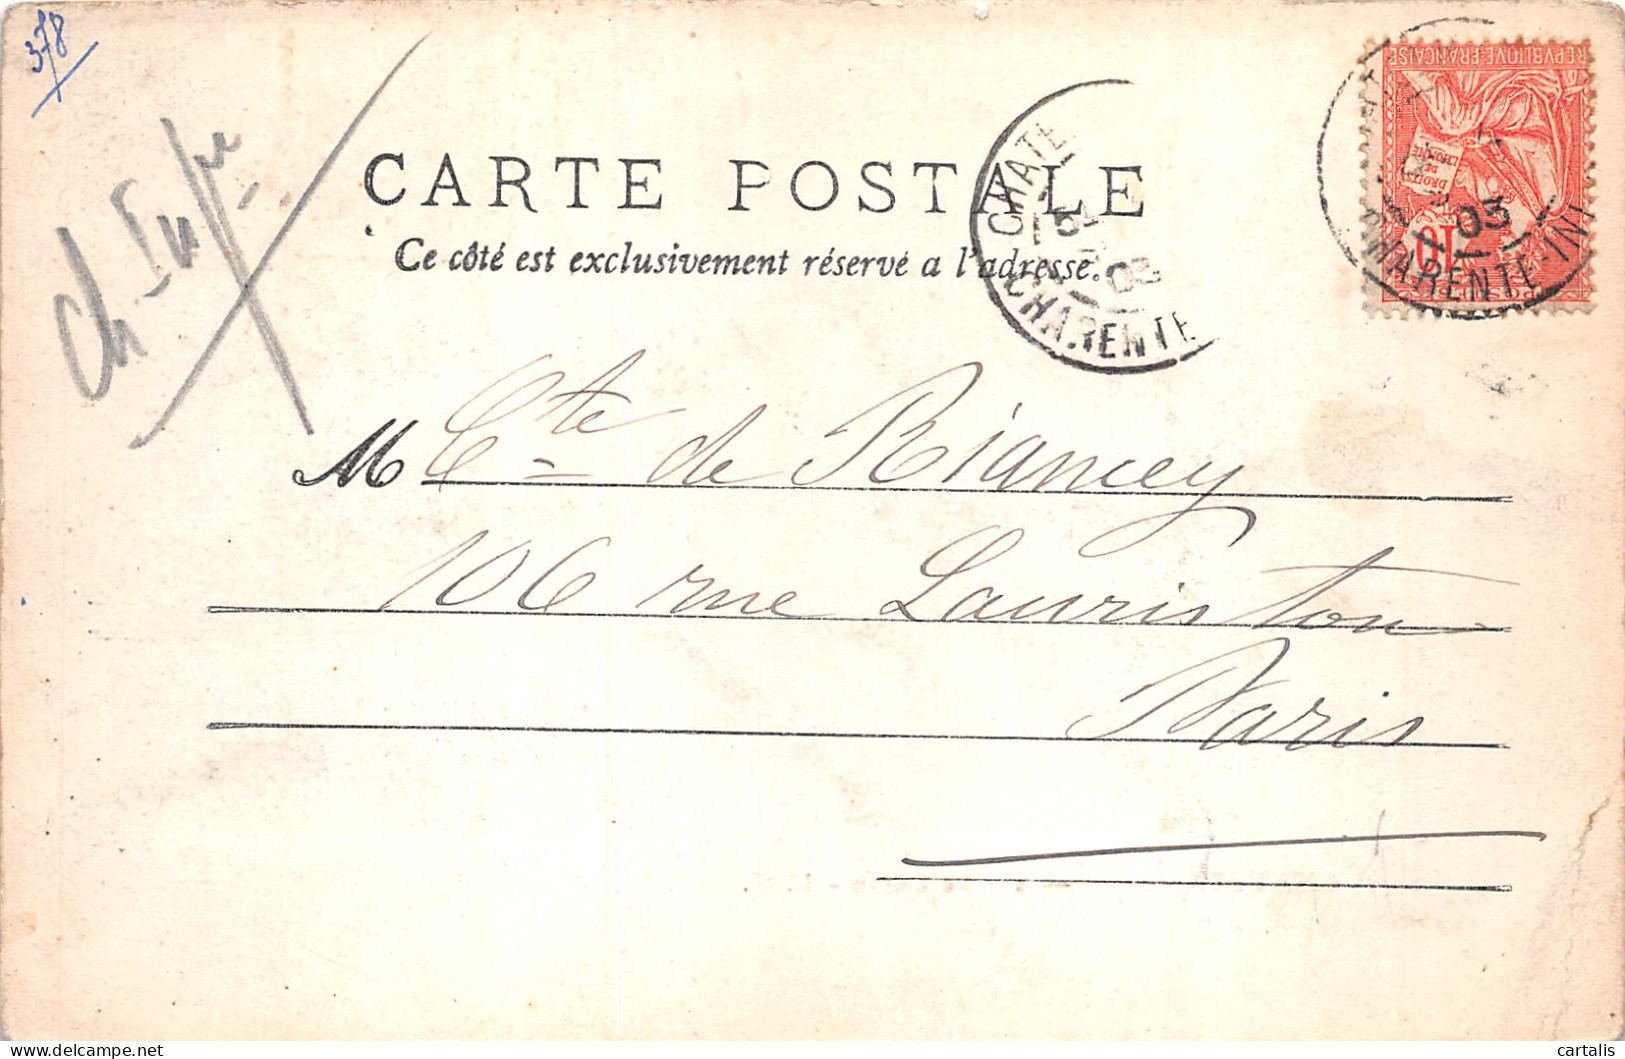 378
Ch Infre
CARTE POSTALE
Ce côté est exclusivement réservé a l'adresse.
CHATE
15
03
CHARENTE
REPVBLIQVE·FRANÇAISE
DROITS
DE
L'HOMME
10
03
CHARENTE-INF
M Cte de Riancey
106 rue Lauriston
Paris
cartalis
delcampe.net